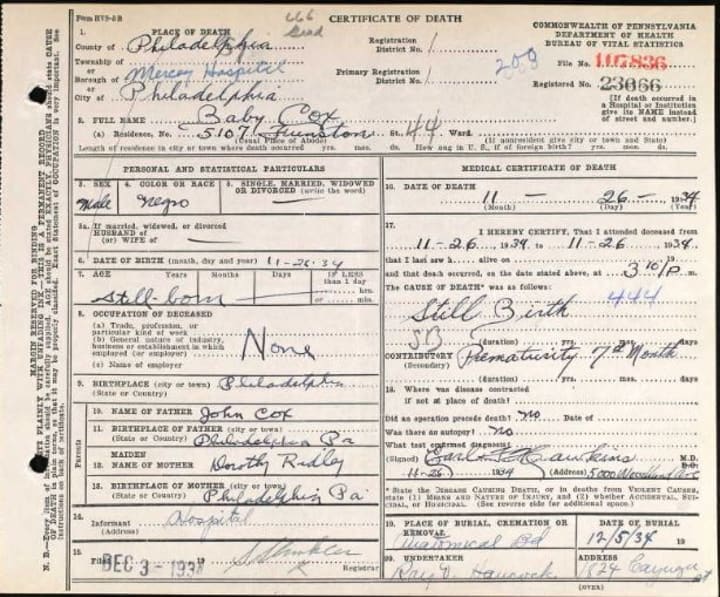 Form HVS-5 R
666
Grad
CERTIFICATE OF DEATH
COMMONWEALTH OF PENNSYLVANIA
DEPARTMENT OF HEALTH
BUREAU OF VITAL STATISTICS
1. PLACE OF DEATH
County of Philadelphia
Registration District No. 1
File No. 117836
Township of
or
Borough of Mercey Hospital
Primary Registration District No. 1
209
Registered No. 23066
or
City of Philadelphia
(If death occurred in a Hospital or Institution give its NAME instead of street and number.)
2. FULL NAME Baby Cox
(a) Residence. No. 5107 Funston St. 44 Ward.
(Usual Place of Abode)
(If nonresident give city or town and State)
Length of residence in city or town where death occurred yrs. mos. ds. How long in U. S., if of foreign birth? yrs. mos. ds.
MARGIN RESERVED FOR BINDING
PERSONAL AND STATISTICAL PARTICULARS
3. SEX
Male
4. COLOR OR RACE
Negro
5. SINGLE, MARRIED, WIDOWED OR DIVORCED (write the word)
5a. If married, widowed, or divorced
HUSBAND of
(or) WIFE of
6. DATE OF BIRTH (month, day and year) 11-26-34
7. AGE Years Months Days If LESS than 1 day
hrs.
or min.
Still-born
8. OCCUPATION OF DECEASED
(a) Trade, profession, or particular kind of work
(b) General nature of industry, business or establishment in which employed (or employer)
(c) Name of employer
None
9. BIRTHPLACE (city or town) Philadelphia
(State or Country)
Parents
10. NAME OF FATHER John Cox
11. BIRTHPLACE OF FATHER (city or town)
(State or Country) Philadelphia Pa
12. MAIDEN NAME OF MOTHER Dorothy Ridley
13. BIRTHPLACE OF MOTHER (city or town)
(State or Country) Philadelphia Pa.
14. Informant Hospital
(Address)
15. Filed DEC 3-1934 19
Registrar
MEDICAL CERTIFICATE OF DEATH
16. DATE OF DEATH 11 - 26 - 1934
(Month) (Day) (Year)
17. I HEREBY CERTIFY, That I attended deceased from
11-26, 1934 to 11-26, 1934
that I last saw h alive on 19
and that death occurred, on the date stated above, at 3 10/P m.
The CAUSE OF DEATH* was as follows:
444
Still Birth
SB
(duration) yrs. mos. ds.
CONTRIBUTORY Prematurity 7th Month
(Secondary)
(duration) yrs. mos. ds.
18. Where was disease contracted
if not at place of death?
Did an operation precede death? no Date of
Was there an autopsy? no
What test confirmed diagnosis?
(Signed) Hawkins M.D.
D.O.
11-26-, 1934 (Address) 5000 Woodland Ave
* State the DISEASE CAUSING DEATH, or in deaths from VIOLENT CAUSES, state (1) MEANS AND NATURE OF INJURY, and (2) whether ACCIDENTAL, SUICIDAL, or HOMICIDAL. (See reverse side for additional space.)
19. PLACE OF BURIAL, CREMATION OR REMOVAL
Anatomical Bd
DATE OF BURIAL
12/5/34 19
20. UNDERTAKER
Hancock
ADDRESS
1824 Cayuga st
(OVER)